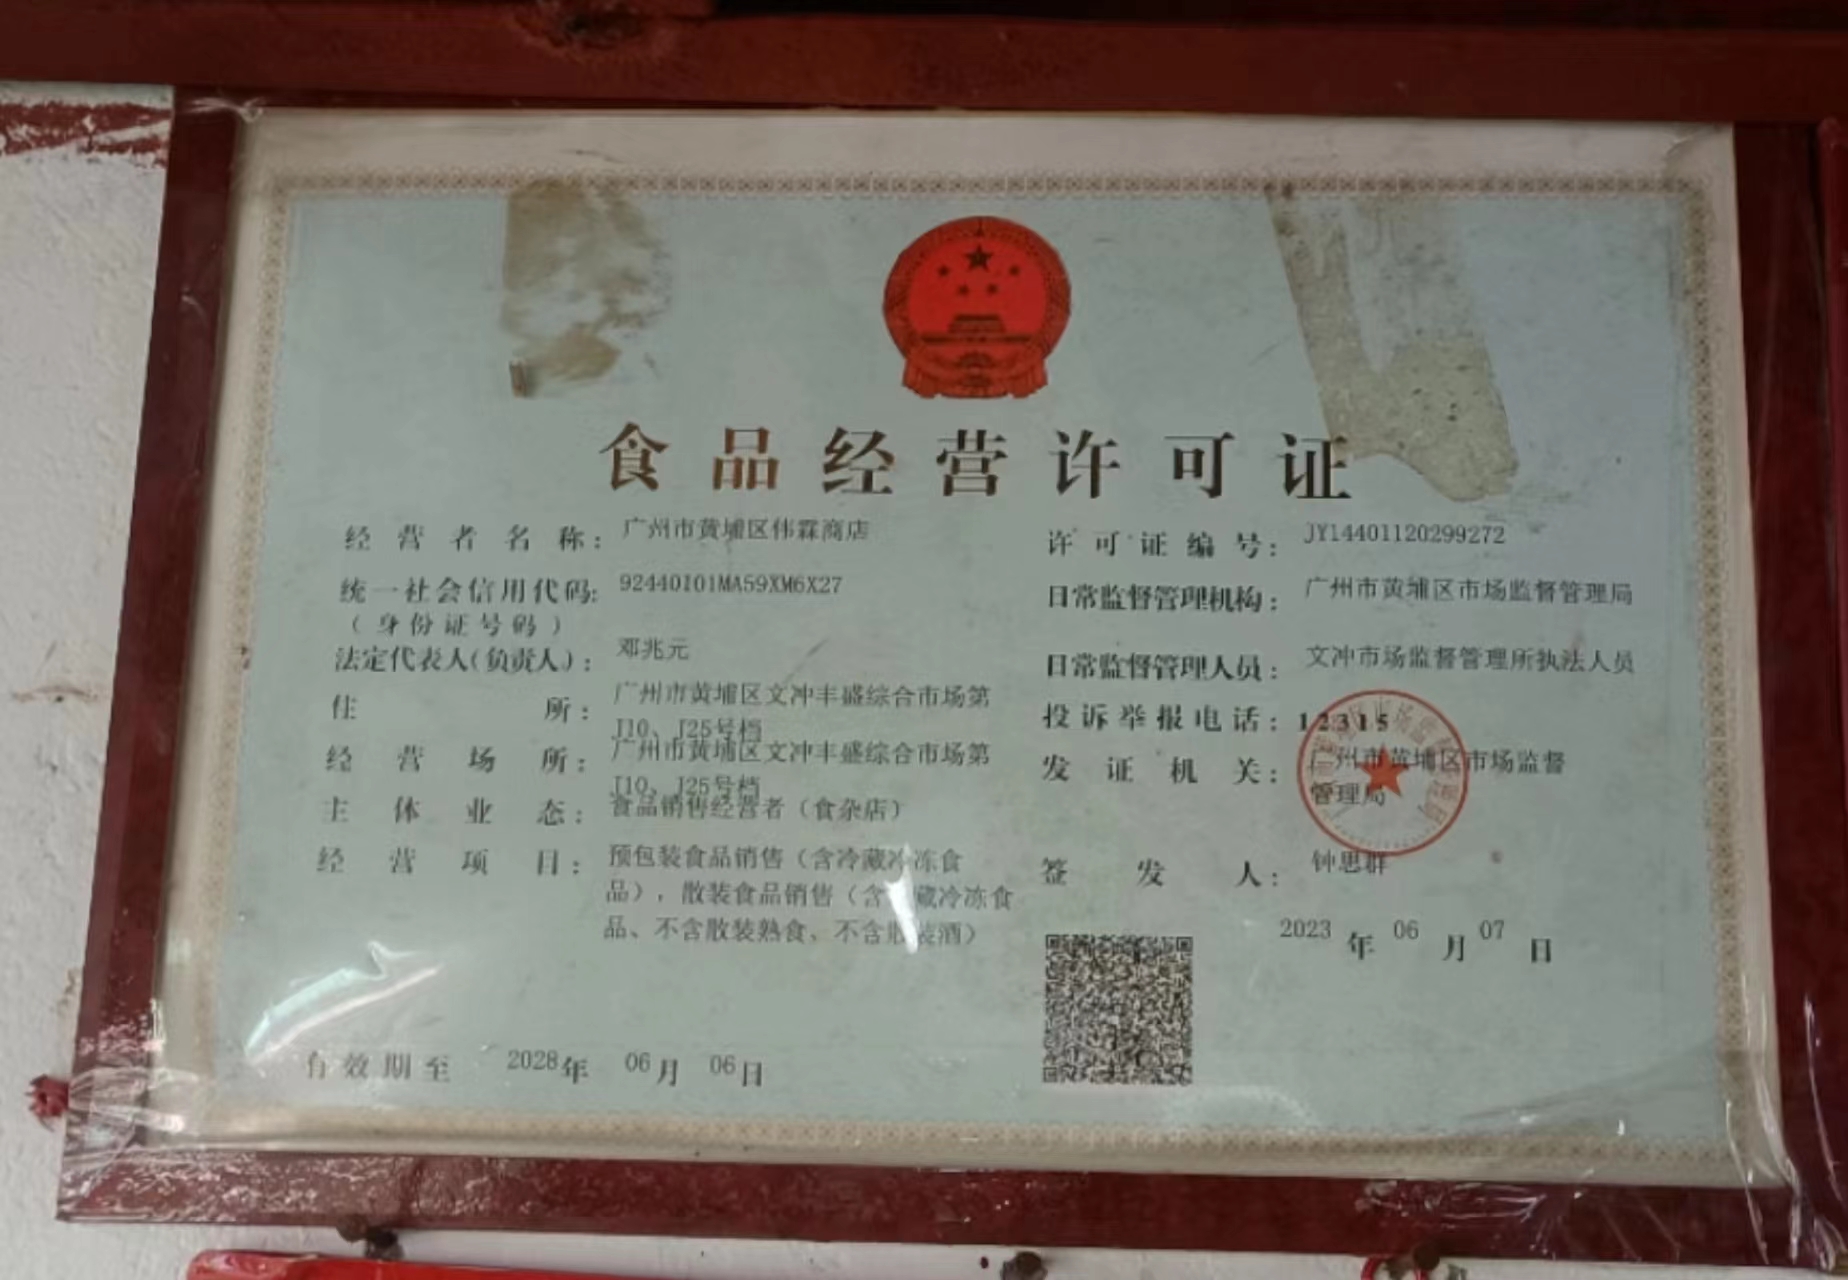 食品经营许可证
经营者名称：广州市黄埔区伟霖商店
统一社会信用代码：92440101MA59XM6X27
（身份证号码）
法定代表人（负责人）：邓兆元
住所：广州市黄埔区文冲丰盛综合市场第
J10、J25号档
经营场所：广州市黄埔区文冲丰盛综合市场第
J10、J25号档
主体业态：食品销售经营者（食杂店）
经营项目：预包装食品销售（含冷藏冷冻食
品），散装食品销售（含冷藏冷冻食
品、不含散装熟食、不含散装酒）
有效期至 2028年 06月 06日
许可证编号：JY14401120299272
日常监督管理机构：广州市黄埔区市场监督管理局
日常监督管理人员：文冲市场监督管理所执法人员
投诉举报电话：12315
发证机关：广州市黄埔区市场监督
管理局
签发人：钟思群
2023 年 06 月 07 日